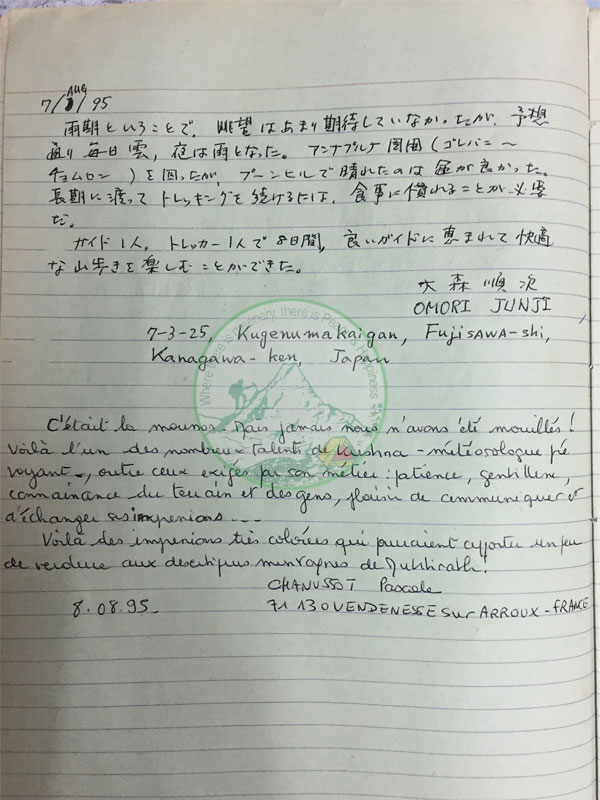 7/AUG/95
雨期ということで、眺望はあまり期待していなかったが、予想
通り毎日雲、夜は雨となった。アンナプルナ周囲(ゴレパニ〜
チョムロン)を回ったが、プーンヒルで晴れたのは運が良かった。
長期に渡ってトレッキングを続けるには、食事に慣れることが必要
だ。
ガイド1人、トレッカー1人で8日間、良いガイドに恵まれて快適
な山歩きを楽しむことができた。
大森順次
OMORI JUNJI
7-3-25, Kugenumakaigan, FUJISAWA-shi,
Kanagawa-ken, Japan
Where there is scenery, there is Peace & Happiness
C'était la mousson. Mais jamais nous n'avons été mouillés!
Voilà l'un des nombreux talents de Krishna - météorologue
voyant -, outre ceux exigés par son métier: patience, gentillesse,
connaissance du terrain et des gens, plaisir de communiquer et
d'échanger ses impressions...
Voilà des impressions très colorées qui pourraient apporter un peu
de verdure aux de
CHANUSSOT Pascale
8.08.95- 71130 VENDENESSE sur ARROUX - FRANCE